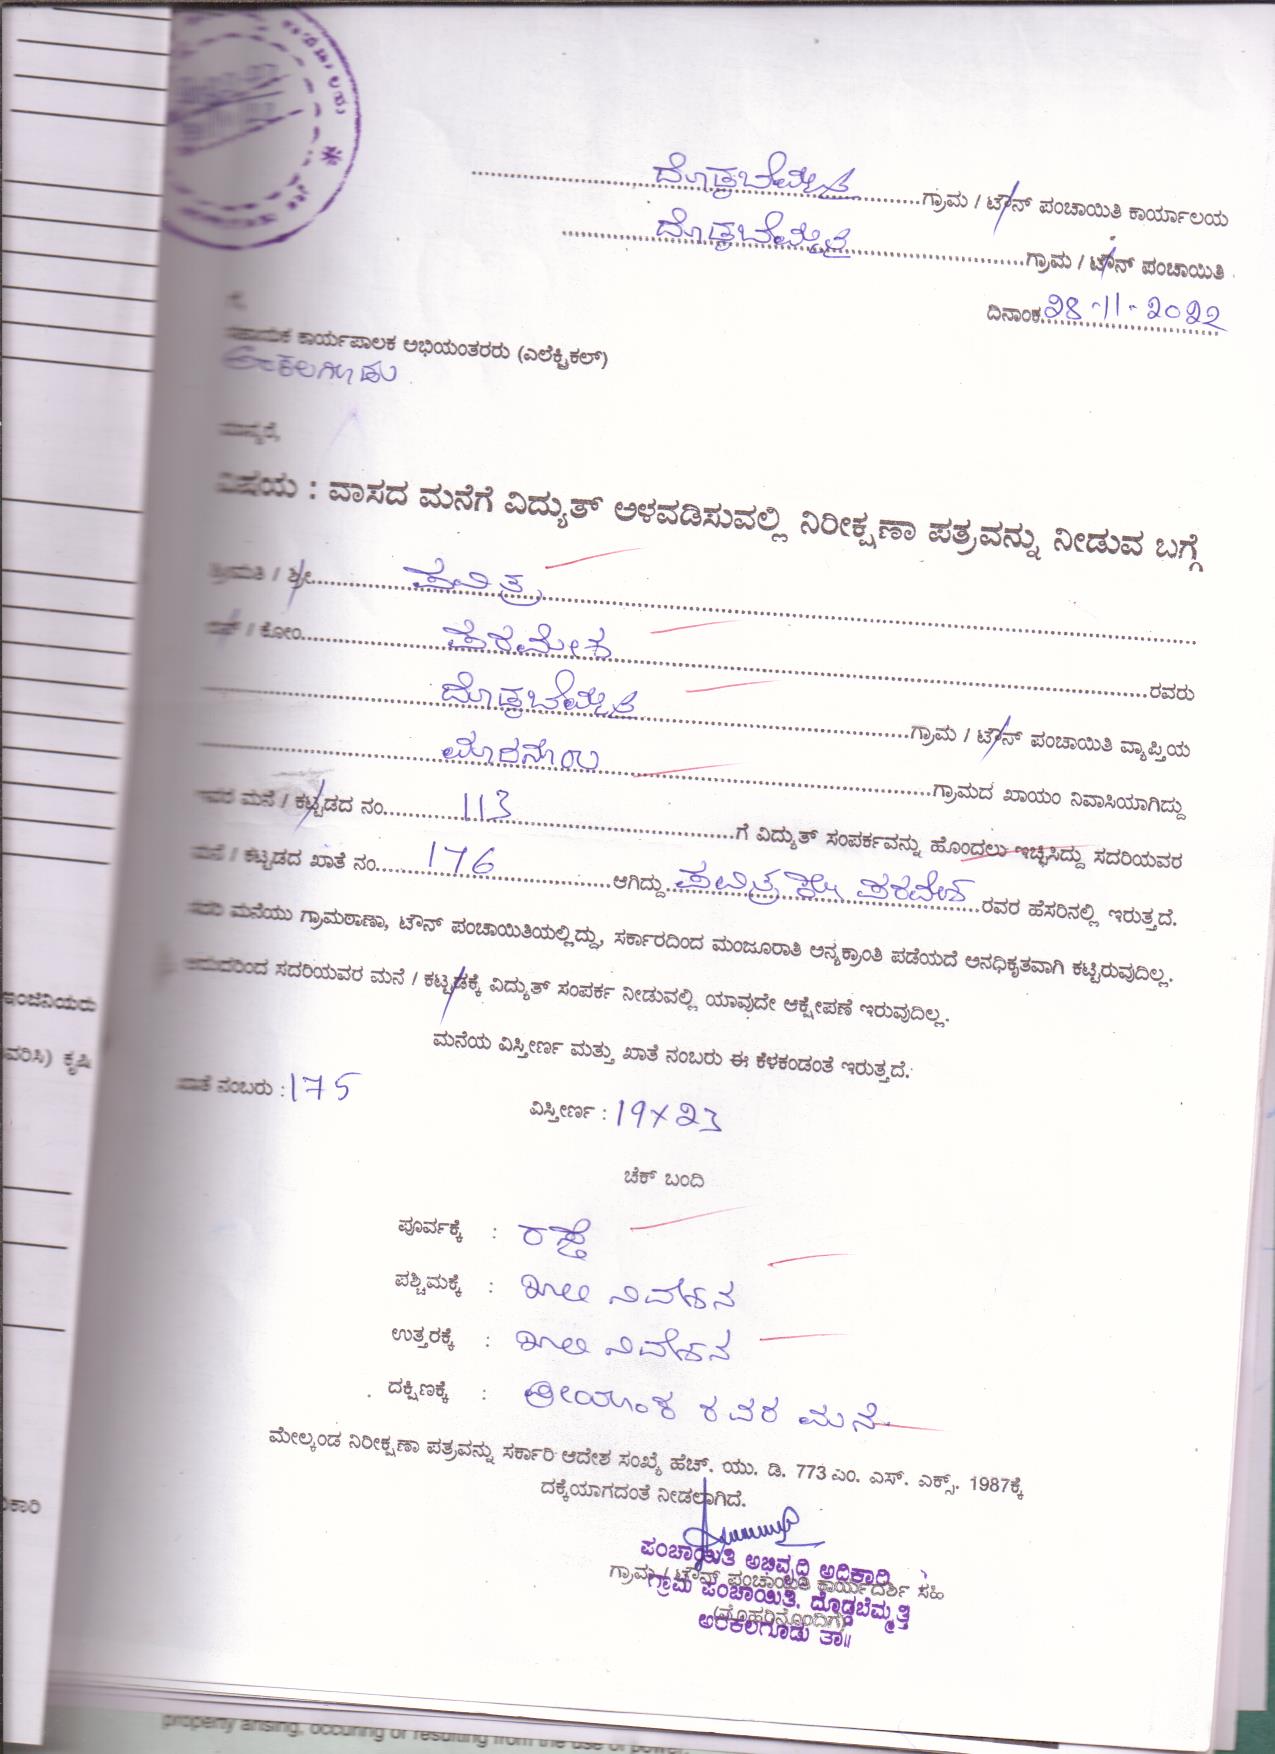 ದೊಡ್ಡಬೆಮ್ಮತ್ತಿ ಗ್ರಾಮ / ಟೌನ್ ಪಂಚಾಯಿತಿ ಕಾರ್ಯಾಲಯ
ದೊಡ್ಡಬೆಮ್ಮತ್ತಿ ಗ್ರಾಮ / ಟೌನ್ ಪಂಚಾಯಿತಿ
ದಿನಾಂಕ 28-11-2022
ಗೆ,
ಸಹಾಯಕ ಕಾರ್ಯಪಾಲಕ ಅಭಿಯಂತರರು (ಎಲೆಕ್ಟ್ರಿಕಲ್)
ಅರಕಲಗೂಡು
ಮಾನ್ಯರೆ,
ವಿಷಯ : ವಾಸದ ಮನೆಗೆ ವಿದ್ಯುತ್ ಅಳವಡಿಸುವಲ್ಲಿ ನಿರೀಕ್ಷಣಾ ಪತ್ರವನ್ನು ನೀಡುವ ಬಗ್ಗೆ
ಶ್ರೀಮತಿ / ಶ್ರೀ ಪವಿತ್ರ
ಬಿನ್ / ಕೋಂ ಪರಮೇಶ ರವರು
ದೊಡ್ಡಬೆಮ್ಮತ್ತಿ ಗ್ರಾಮ / ಟೌನ್ ಪಂಚಾಯಿತಿ ವ್ಯಾಪ್ತಿಯ
ಗ್ರಾಮದ ಖಾಯಂ ನಿವಾಸಿಯಾಗಿದ್ದು
ಇವರ ಮನೆ / ಕಟ್ಟಡದ ನಂ. 113 ಗೆ ವಿದ್ಯುತ್ ಸಂಪರ್ಕವನ್ನು ಹೊಂದಲು ಇಚ್ಛಿಸಿದ್ದು ಸದರಿಯವರ
ಮನೆ / ಕಟ್ಟಡದ ಖಾತೆ ನಂ. 176 ಆಗಿದ್ದು ಪವಿತ್ರ ಕೋಂ ಪರಮೇಶ್ ರವರ ಹೆಸರಿನಲ್ಲಿ ಇರುತ್ತದೆ.
ಸದರಿ ಮನೆಯು ಗ್ರಾಮಠಾಣಾ, ಟೌನ್ ಪಂಚಾಯಿತಿಯಲ್ಲಿದ್ದು, ಸರ್ಕಾರದಿಂದ ಮಂಜೂರಾತಿ ಅನ್ಯಕ್ರಾಂತಿ ಪಡೆಯದೆ ಅನಧಿಕೃತವಾಗಿ ಕಟ್ಟಿರುವುದಿಲ್ಲ.
ಆದುದರಿಂದ ಸದರಿಯವರ ಮನೆ / ಕಟ್ಟಡಕ್ಕೆ ವಿದ್ಯುತ್ ಸಂಪರ್ಕ ನೀಡುವಲ್ಲಿ ಯಾವುದೇ ಆಕ್ಷೇಪಣೆ ಇರುವುದಿಲ್ಲ.
ಮನೆಯ ವಿಸ್ತೀರ್ಣ ಮತ್ತು ಖಾತೆ ನಂಬರು ಈ ಕೆಳಕಂಡಂತೆ ಇರುತ್ತದೆ.
ಖಾತೆ ನಂಬರು : 175
ವಿಸ್ತೀರ್ಣ : 19 x 23
ಚೆಕ್ ಬಂದಿ
ಪೂರ್ವಕ್ಕೆ : ರಸ್ತೆ
ಪಶ್ಚಿಮಕ್ಕೆ : ಖಾಲಿ ನಿವೇಶನ
ಉತ್ತರಕ್ಕೆ : ಖಾಲಿ ನಿವೇಶನ
ದಕ್ಷಿಣಕ್ಕೆ : ರವರ ಮನೆ
ಮೇಲ್ಕಂಡ ನಿರೀಕ್ಷಣಾ ಪತ್ರವನ್ನು ಸರ್ಕಾರಿ ಆದೇಶ ಸಂಖ್ಯೆ ಹೆಚ್. ಯು. ಡಿ. 773 ಎಂ. ಎಸ್. ಎಕ್ಸ್. 1987ಕ್ಕೆ
ದಕ್ಕೆಯಾಗದಂತೆ ನೀಡಲಾಗಿದೆ.
ಪಂಚಾಯಿತಿ ಅಭಿವೃದ್ಧಿ ಅಧಿಕಾರಿ
ಗ್ರಾಮ / ಟೌನ್ ಪಂಚಾಯಿತಿ ಕಾರ್ಯದರ್ಶಿ ಸಹಿ
ಗ್ರಾಮ ಪಂಚಾಯಿತಿ. ದೊಡ್ಡಬೆಮ್ಮತ್ತಿ
(ಮೊಹರಿನೊಂದಿಗೆ)
ಅರಕಲಗೂಡು ತಾ॥
ಇಂಜಿನಿಯರು
ವರಿಸಿ) ಕೃಷಿ
ಕಾರಿ
property arising, occuring or resulting from the use of power